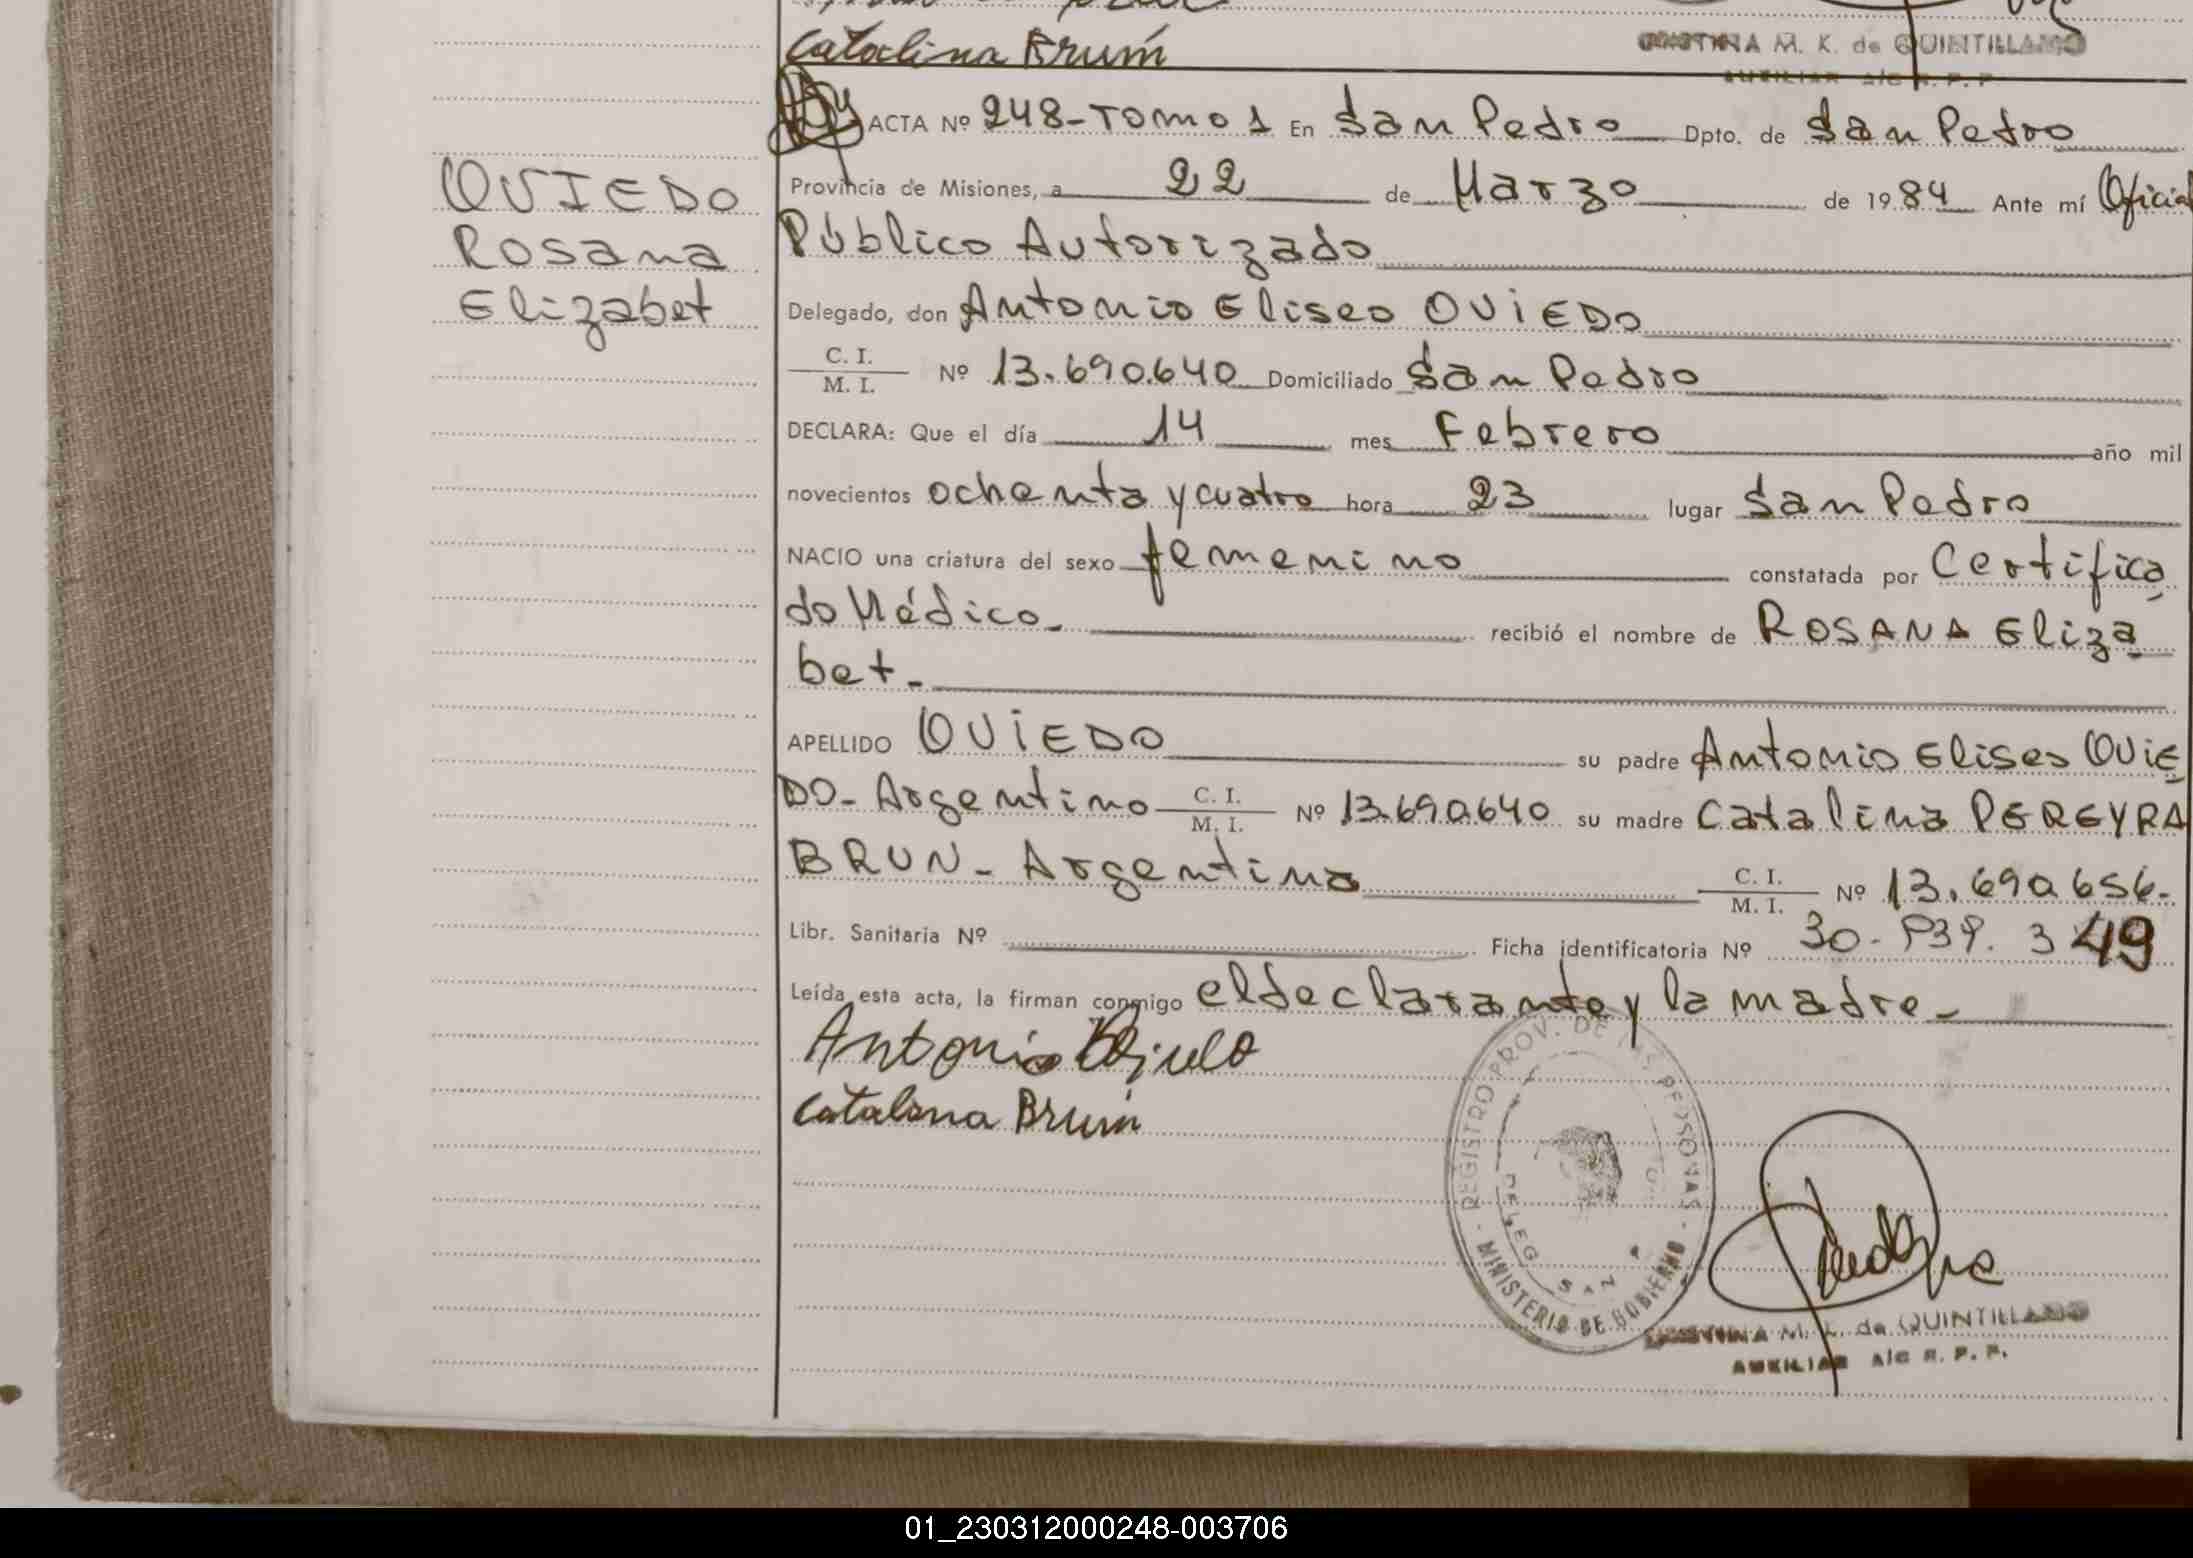 Catalina Brum
CRISTINA M. K. de QUINTILLANO
AUXILIAR A/C R. P. P.
ACTA Nº 248-Tomo 1 En San Pedro Dpto. de San Pedro
Provincia de Misiones, a 22 de Marzo de 1984 Ante mí Oficial
Público Autorizado
OVIEDO
Rosana
Elizabet
Delegado, don Antonio Eliseo OVIEDO
C. I.
M. I. Nº 13.690.640 Domiciliado San Pedro
DECLARA: Que el día 14 mes Febrero año mil
novecientos ochenta y cuatro hora 23 lugar San Pedro
NACIO una criatura del sexo femenino constatada por Certifica
do Médico. recibió el nombre de ROSANA Eliza
bet.
APELLIDO OVIEDO su padre Antonio Eliseo OVIE
DO- Argentino C. I.
M. I. Nº 13.690.640 su madre Catalina PEREYRA
BRUN- Argentina C. I.
M. I. Nº 13.690.656.
Libr. Sanitaria Nº Ficha identificatoria Nº 30. 939. 349
Leída esta acta, la firman conmigo el declarante y la madre-
Antonio
Catalina Brum
REGISTRO PROV. DE LAS PERSONAS
DELEG. SAN P
MINISTERIO DE GOBIERNO
CRISTINA M. K. de QUINTILLANO
AUXILIAR A/C R. P. P.
01_230312000248-003706